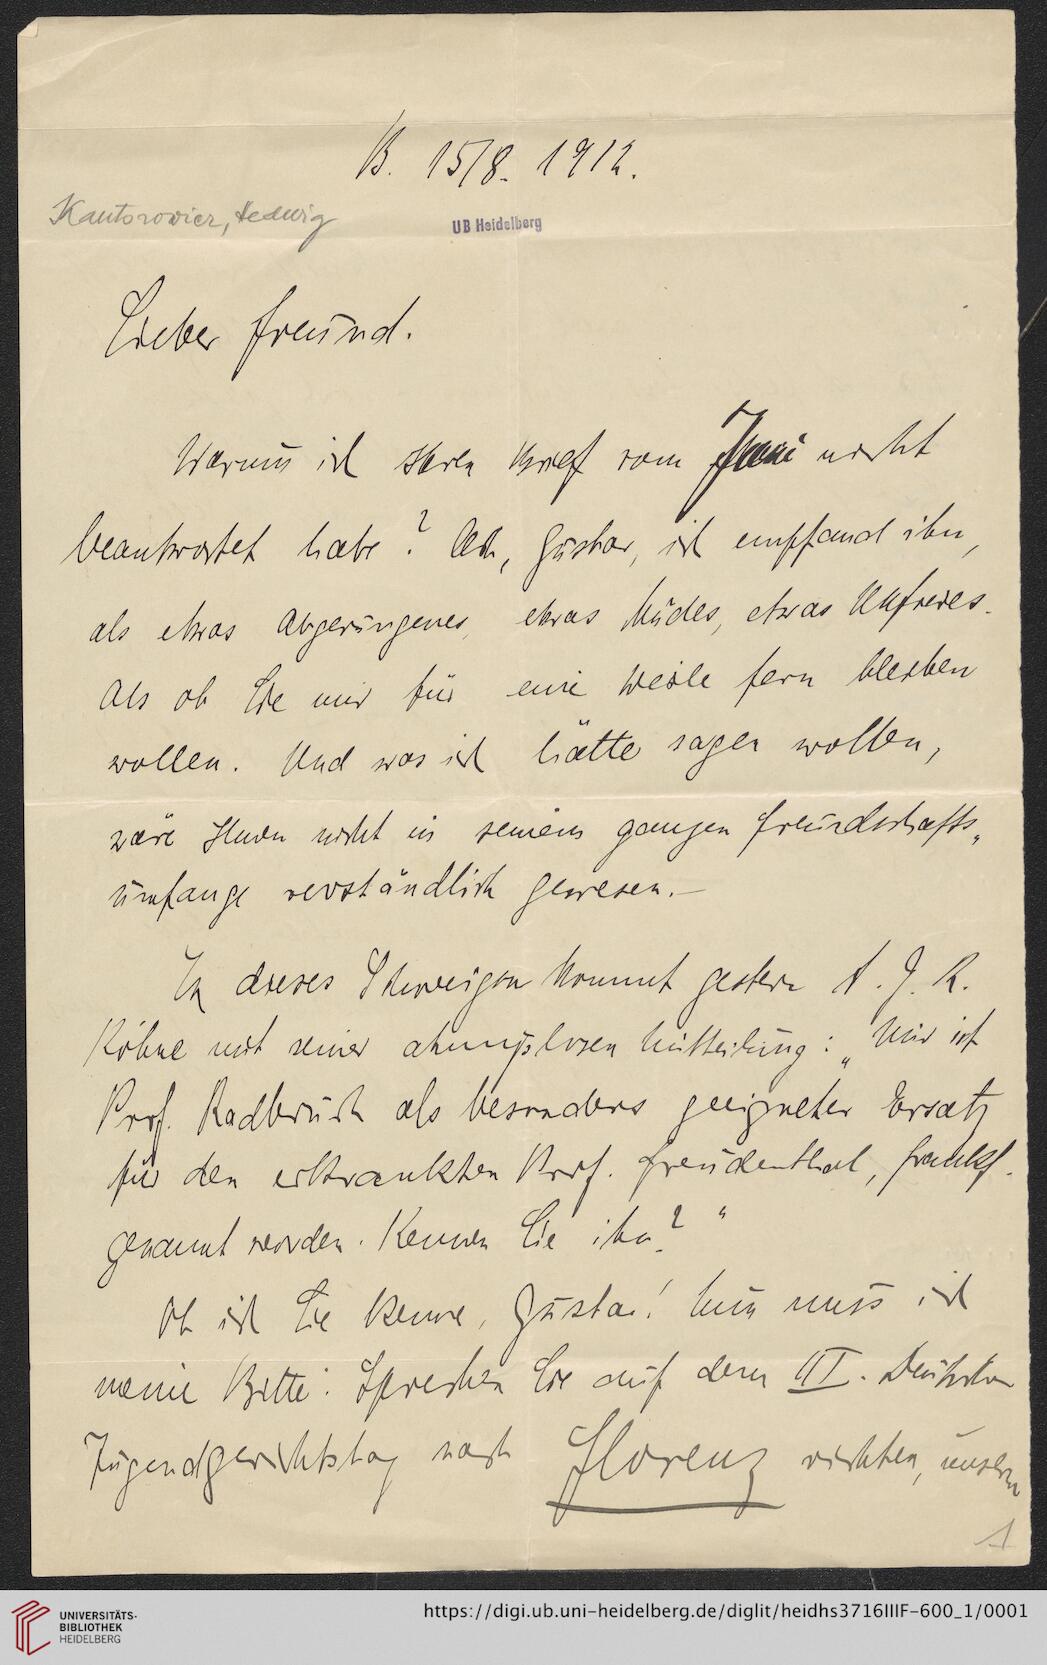 B. 15/8. 1912.
Kantorowicz, Hedwig
UB Heidelberg
Lieber Freund.
Warum ich Ihren Brief vom Juni nicht
beantwortet habe? Ach, Gustav, ich empfand ihn,
als etwas Abgerungenes, etwas Müdes, etwas Unfreies.
Als ob Sie mir für eine Weile fern bleiben
wollen. Und was ich hätte sagen wollen,
wäre Ihnen nicht in seinem ganzen Freundschafts„
umfange verständlich gewesen.—
In dieses Schweigen kommt gestern A. G. R.
Köhne mit seiner ahnungslosen Mitteilung: „Mir ist
Prof. Radbruch als besonders geeigneter Ersatz
für den erkrankten Prof. Freudenthal, Frankf.
genannt worden. Kennen Sie ihn?“
Ob ich Sie kenne, Gustav! Nun muss ich
meine Bitte: Sprechen Sie auf dem III. Deutschen
Jugendgerichtstag nach Florenz richten, unserm
1
UNIVERSITÄTS-
BIBLIOTHEK
HEIDELBERG
https://digi.ub.uni-heidelberg.de/diglit/heidhs3716IIIF-600_1/0001